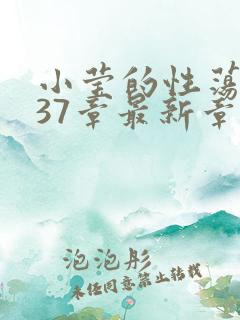 小莹的性荡
37章最新章
泡泡彤
未经同意禁止转载